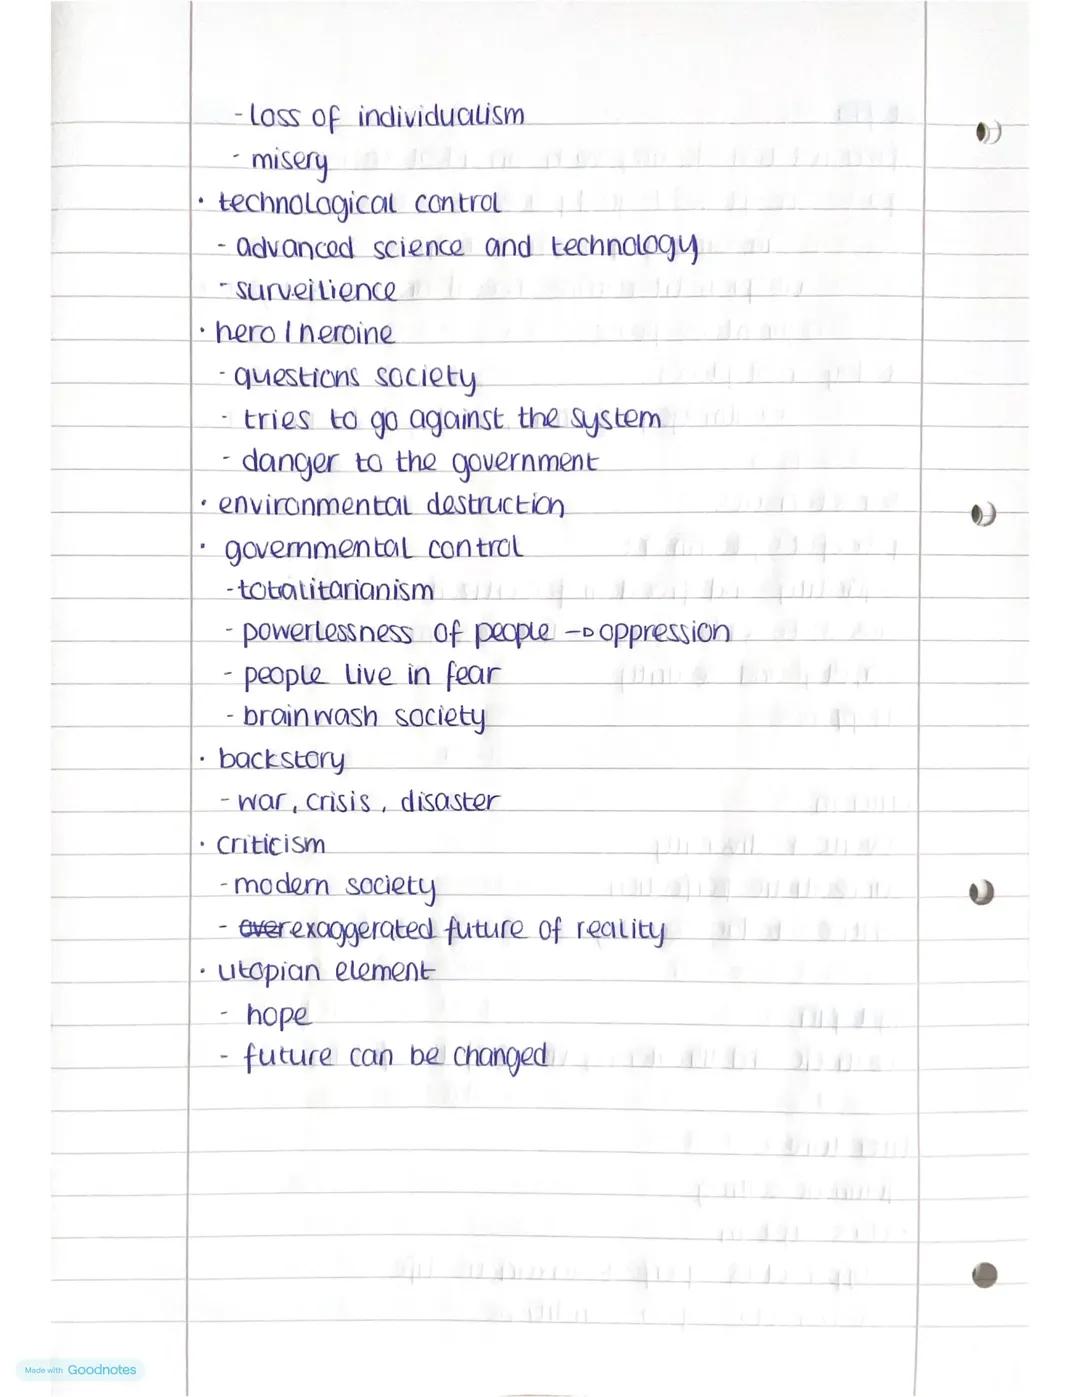 - loss of individualism
- misery
• technological control
- advanced science and technology
- surveilience
• hero / heroine
- questions society
- tries to go against the system
- danger to the government
• environmental destruction
• governmental control
- totalitarianism
- powerlessness of people → oppression
- people live in fear
- brainwash society
• backstory
- war, crisis, disaster
• criticism
- modern society
- overexaggerated future of reality
• utopian element
- hope
- future can be changed
Made with Goodnotes